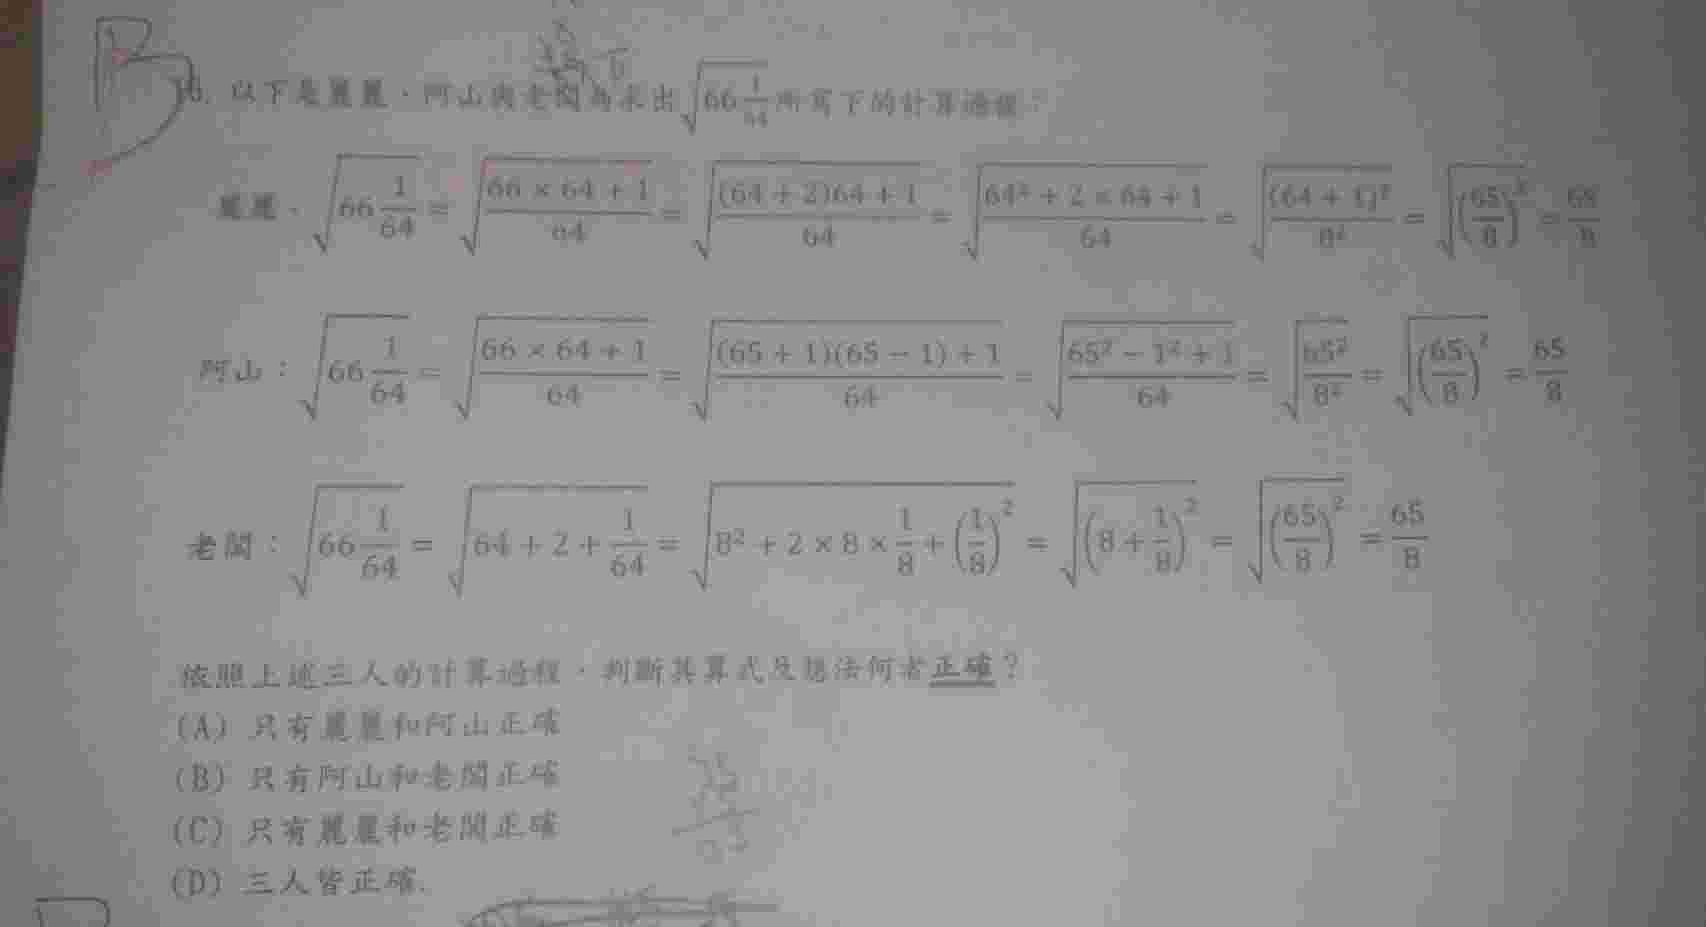 B
16. 以下是麗麗、阿山與老闆為求出√(66 1/64) 所寫下的計算過程：
麗麗：√(66 1/64) = √((66 × 64 + 1)/64) = √(((64 + 2)64 + 1)/64) = √((64² + 2 × 64 + 1)/64) = √((64 + 1)²/8²) = √((65/8)²) = 65/8
阿山：√(66 1/64) = √((66 × 64 + 1)/64) = √(((65 + 1)(65 − 1) + 1)/64) = √((65² − 1² + 1)/64) = √(65²/8²) = √((65/8)²) = 65/8
老闆：√(66 1/64) = √(64 + 2 + 1/64) = √(8² + 2 × 8 × 1/8 + (1/8)²) = √((8 + 1/8)²) = √((65/8)²) = 65/8
依照上述三人的計算過程，判斷其算式及想法何者正確？
(A) 只有麗麗和阿山正確
(B) 只有阿山和老闆正確
(C) 只有麗麗和老闆正確
(D) 三人皆正確.